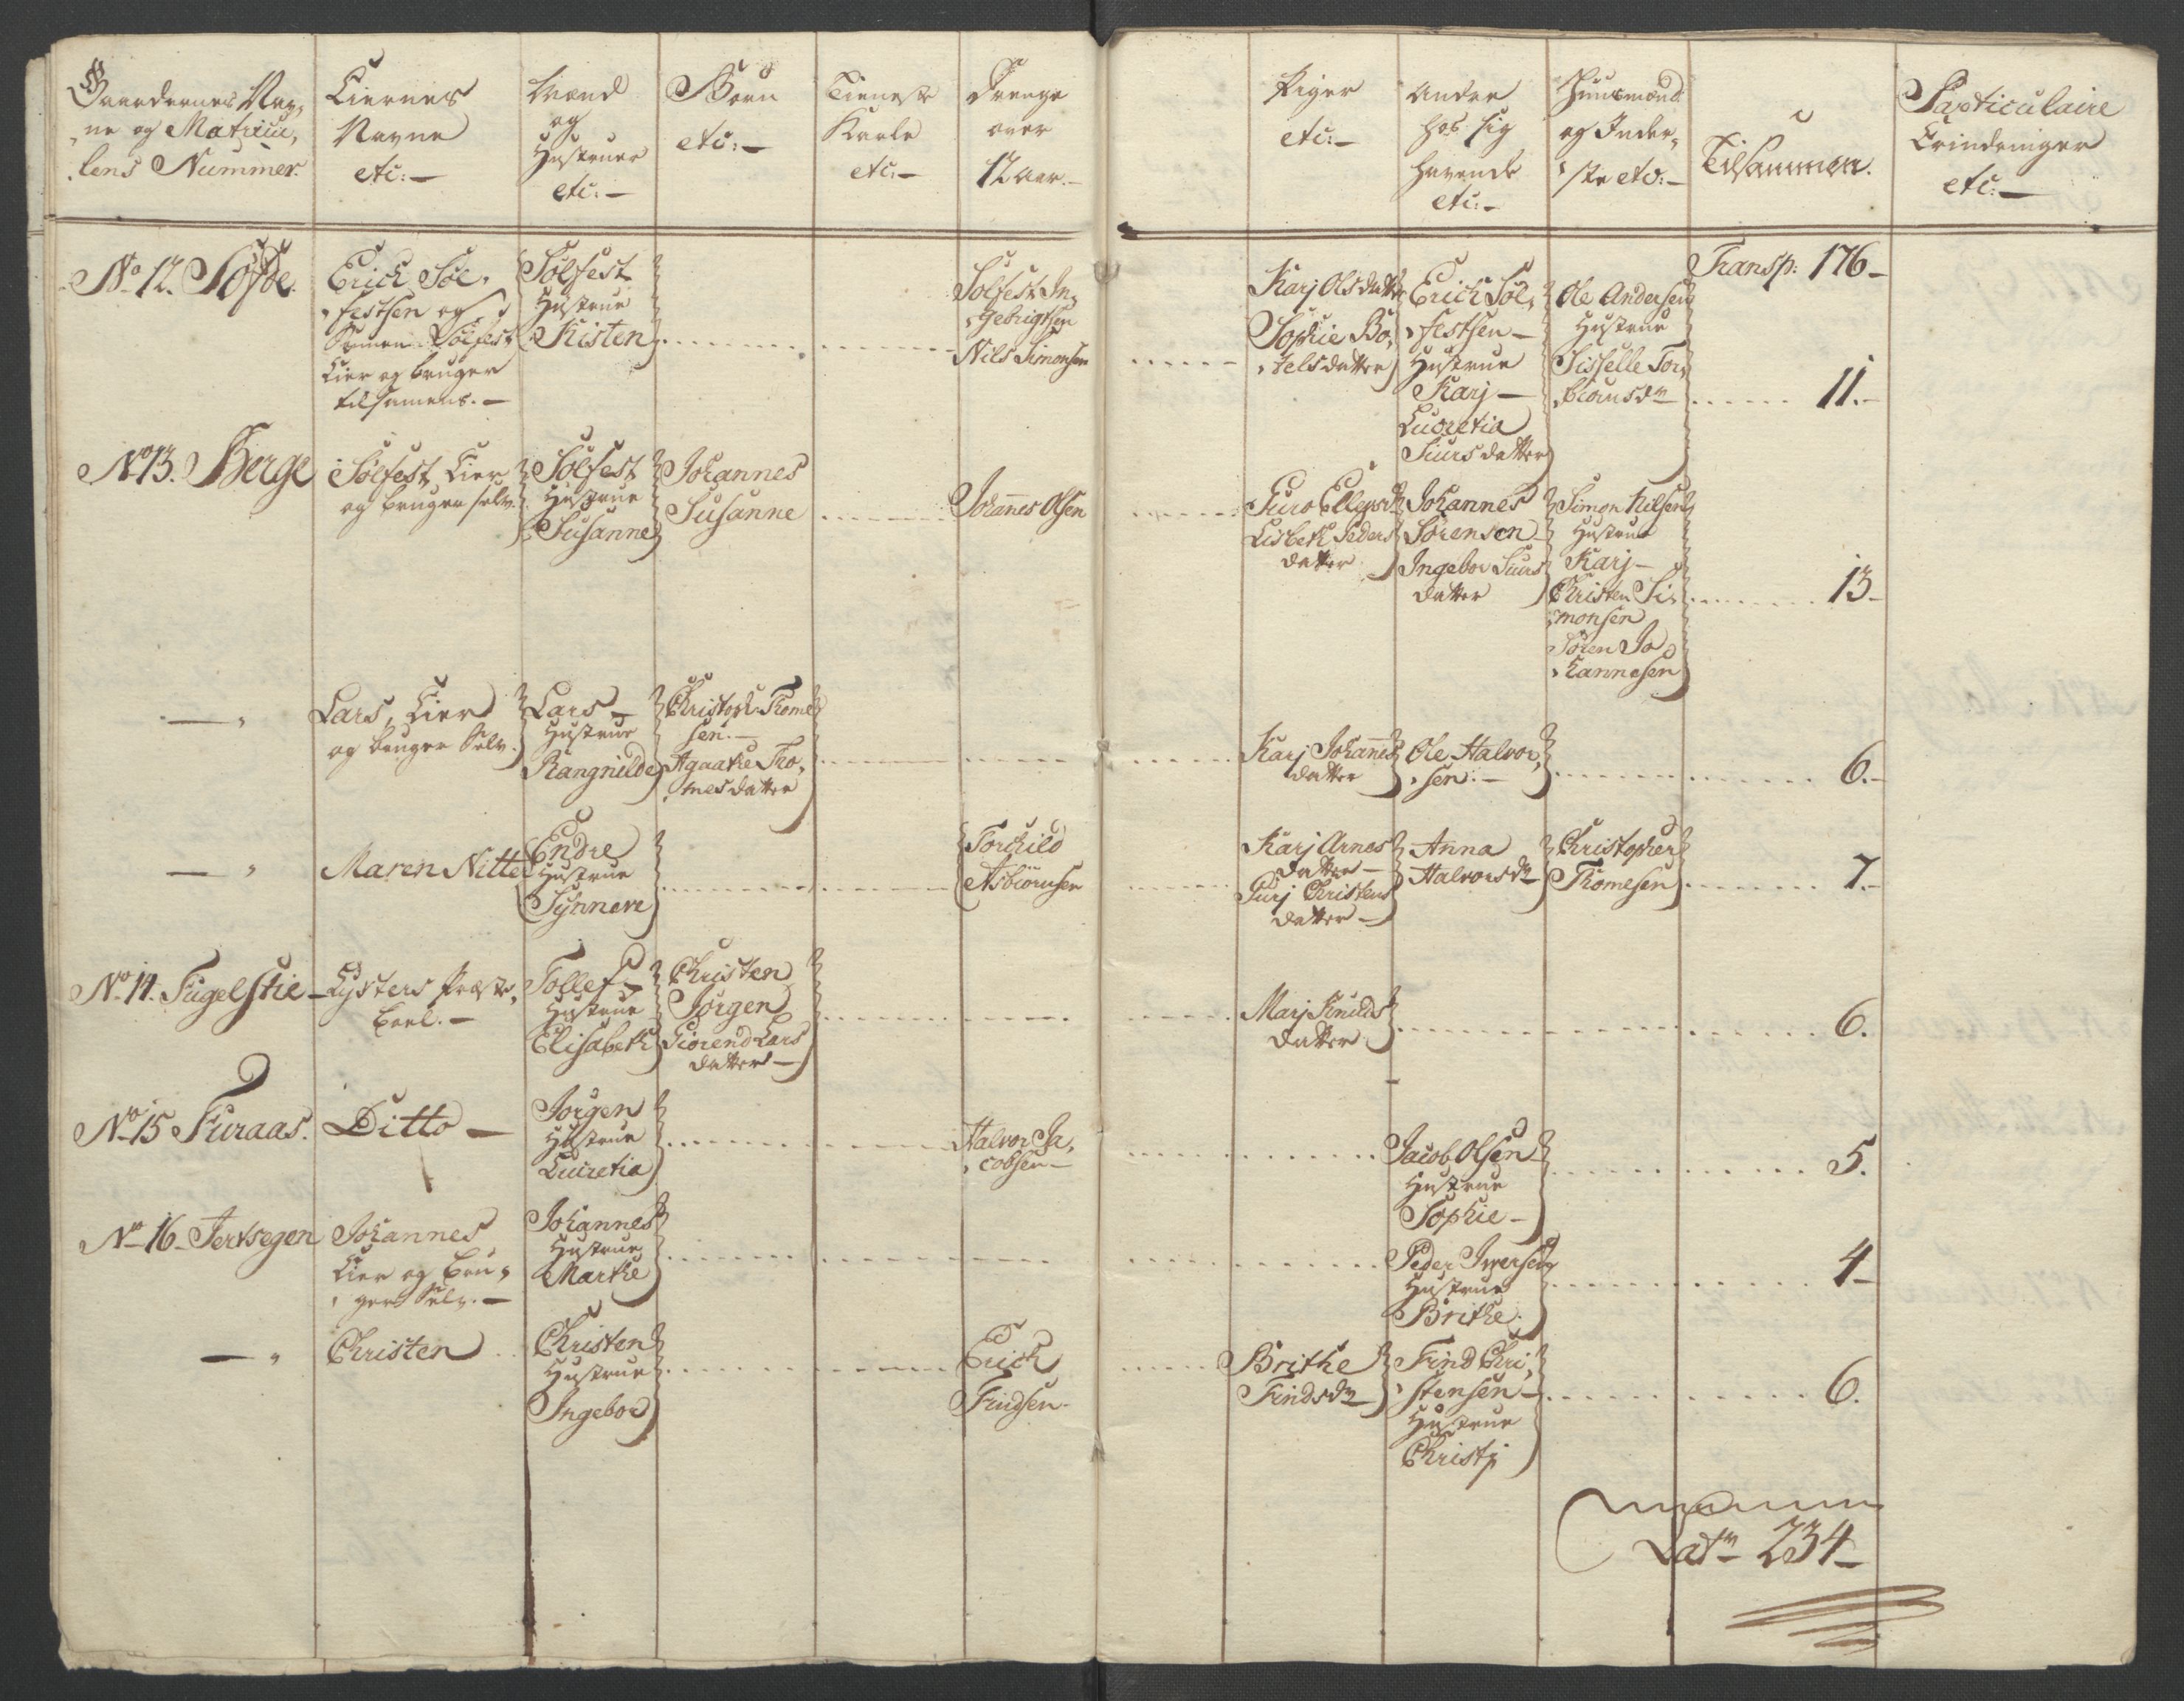 Gaardernes Nav-
ne og Matricu-
lens Nummer.
Eiernes
Navne
etc:—
Mænd
og
Hustruer
etc:—
Børn
etc:—
Tieneste
Karle
etc:—
Drenge
over
12 Aar.—
Piger
etc:—
Andre
hos sig
havende
etc:—
Huusmænd
og Inder-
ste etc:—
Tilsammen.
Particulaire
Erindringer
etc:—
Transp: 176—
No. 12.
Erich Søl-
festsen og
Sønnen Sølfest
Eier og bruger
tilsamens.—
Sølfest
Hustrue
Kisten
Solfest In-
gebrigtsen
Nils Simonsen
Karj Olsdatter
Sophie Bo-
telsdatter
Erich Søl-
festsen—
Hustrue
Karj—
Lucretia
Siursdatter
Ole Andersen
Hustrue
Sisselle Tor-
biørnsdr
11.—
No 13. Berge
Sølfest Eier
og bruger selv.
Sølfest
Hustrue
Susanne
Johannes
Susanne
Johannes Olsen
Guro Ellefsdr
Lisbeth Peders
datter
Johannes
Sørensen
Ingebor Siurs
datter
Simon Nilsen
Hustrue
Karj—
Christen Si-
monsen
Søren Jo-
hannesen
13—
— "
Lars, Eier
og bruger Selv.
Lars—
Hustrue
Rangnilde
Christoph Thome
sen.—
Agaathe Tho-
mesdatter
Karj Johannes
datter
Ole Halvor-
sen.—
6.—
— "
Maren Nitter
Endre
Hustrue
Synneve
Torchild
Asbiørnsen
Karj Arnes
datter—
Gurj Christens
datter—
Anna
Halvorsdr
Christopher
Thomesen
7.—
No. 14. Fugelstie—
Lysters Præste-
boel.—
Tollef—
Hustrue
Elisabeth
Christen
Jørgen
Giørend Lars
datter—
Marj Knuds
datter
6.
No 15 Furaas.
Ditto—
Jørgen
Hustrue
Lucretia
Halvor Ja-
cobsen—
Jacob Olsen
Hustrue
Sophie—
5.
No 16— Jertsegen
Johannes
Eier og bru-
ger Selv.—
Johannes
Hustrue
Marthe
Peder Iversen
Hustrue
Brithe.
4—
— "
Christen
Christen
Hustrue
Ingebor
Erich
Findsen—
Brithe
Findsdr
Find Chri-
stensen—
Hustrue
Christj
6.
Latr— 234—